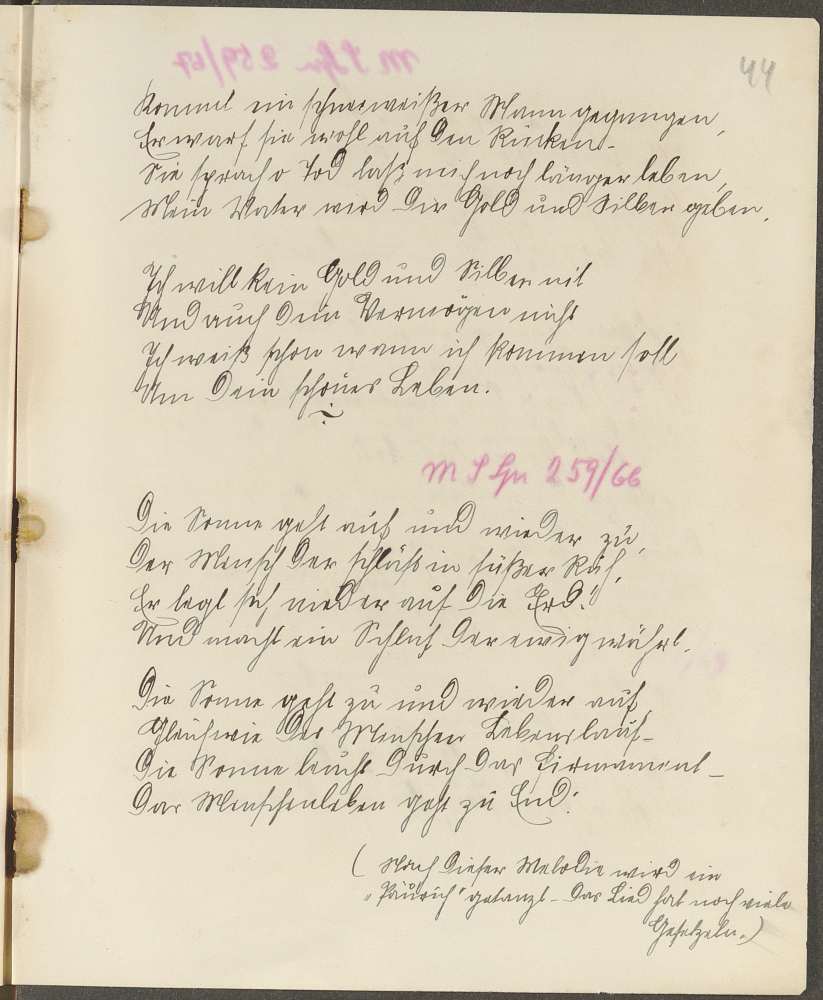 44
Kommt ein schneeweißer Mann gegangen,
Er warf sie wohl auf den Rücken.
Sie sprach o Tod laß mich noch länger leben,
Mein Vater wird Dir Gold und Silber geben.
Ich will kein Gold und Silber nit
Und auch Dein Vermögen nicht
Ich weiß schon wann ich kommen soll
Um Dein schönes Leben.
259/66
Die Sonne geht auf und wieder zu,
Der Mensch der schläft in süßer Ruh,
Er legt sich nieder auf die Erd!
Und macht ein Schlaf der ewig währt.
Die Sonne geht zu und wieder auf
Gleichwie des Menschen Lebenslauf-
Die Sonne leucht durch das Firmament-
Das Menschenleben geht zu End:
( Nach dieser Melodie wird ein
getanzt- Das Lied hat noch viele
Gesetzeln.)